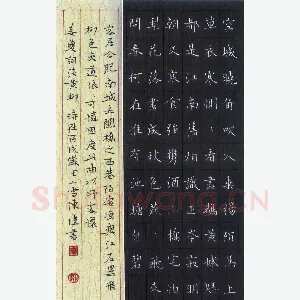 空城曉角吹入垂楊陌馬上
單衣寒惻惻看盡鵝黃嫩綠
都是江南舊相識正岑寂明
朝又寒食強攜酒小橋宅怕
梨花落盡成秋色燕燕飛來
問春何在唯有池塘自碧
客居合肥南城赤闌橋之西巷陌淒涼與江左異唯
柳色夾道依依可憐因度此闋以紓客懷
姜夔詞淡黃柳